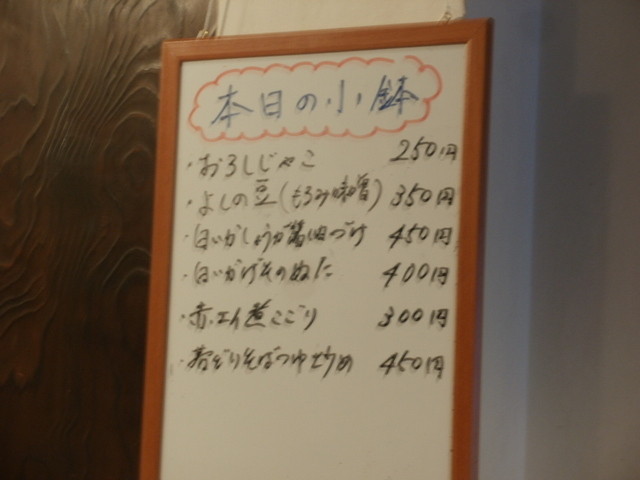 本日の小鉢
・おろしじゃこ 250円
・よしの豆(もろみ味噌) 350円
・白いかしょうが醤油づけ 450円
・白いかげそのぬた 400円
・赤エイ煮こごり 300円
・若どりそばつゆ炒め 450円